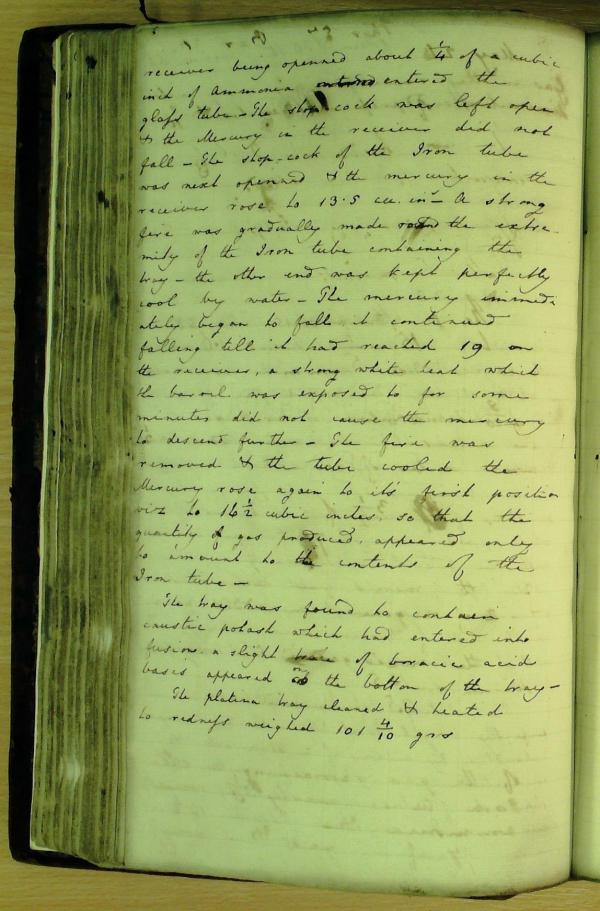 receiver being openned about 1/4 of a cubic
inch of Ammonia entered the
glass tube - The stop cock was left open
& the Mercury in the receiver did not
fall - The stop-cock of the Iron tube
was next openned & the mercury in the
receiver rose to 13.5 cu. ins - A strong
fire was gradually made round the extre-
mity of the Iron tube containing the
tray - the other end was kept perfectly
cool by water - The mercury immedi
ately began to fall it continued
falling till it had reached 19 on
the receiver, a strong white heat which
the barrel was exposed to for some
minutes did not cause the mercury
to descend further - The fire was
removed & the tube cooled the
Mercury rose again to it's first position
viz to 16 1/2 cubic inches, so that the
quantity of gas produced, appeared only
to amount to the contents of the
Iron tube -
The tray was found to contain
caustic potash which had entered into
fusion a slight trace of boracic acid
basis appeared on the bottom of the tray -
The platina tray cleaned & heated
to redness weighed 101 4/10 grs